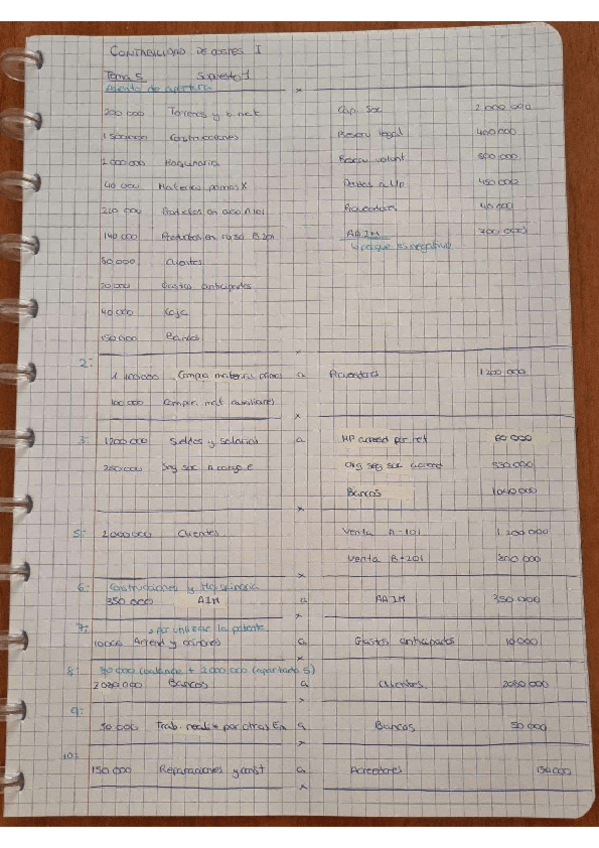 CONTABILIDAD DE COSTES I
Tema 5 Supuesto 1
Asiento de apertura x
200 000 Terrenos y b nat Cap. Soc 2 000 000
1 500 000 Construcciones Reserv legal 400 000
2 000 000 Maquinaria Reserv volunt
40 000 Materias primas X Deudas a L/p 450 000
Productos en curso A101 Acreedores 40 000
140 000 Productos en curso B201 AAIM 700 000
↳ porque es negativo
Clientes
20 000 Gastos anticipados
40 000 Caja
150 000 Bancos
x
2: Compra materias primas a Acreedores 1 200 000
100 000 Compra mat auxiliares
x
3: 1200 000 Sueldos y salarios a HP acreed por ret 60 000
Seg soc a cargo E Org seg soc acreed
Bancos
x
5: 2 000 000 Clientes Venta A-101 1 200 000
Venta B-201 800 000
x
6: Construcciones y Maquinaria
350 000 AIM a AAIM 350 000
x
7: ↳ por utilizar la patente
10000 Arrend y cánones a Gastos anticipados 10 000
x
8: 80 000 (balance + 2 000 000 (apartado 5)
2 080 000 Bancos a Clientes 2080 000
x
9:
50 000 Trab. realiz por otras Em a Bancos 50 000
x
10:
150 000 Reparaciones y const a Acreedores 150 000
x